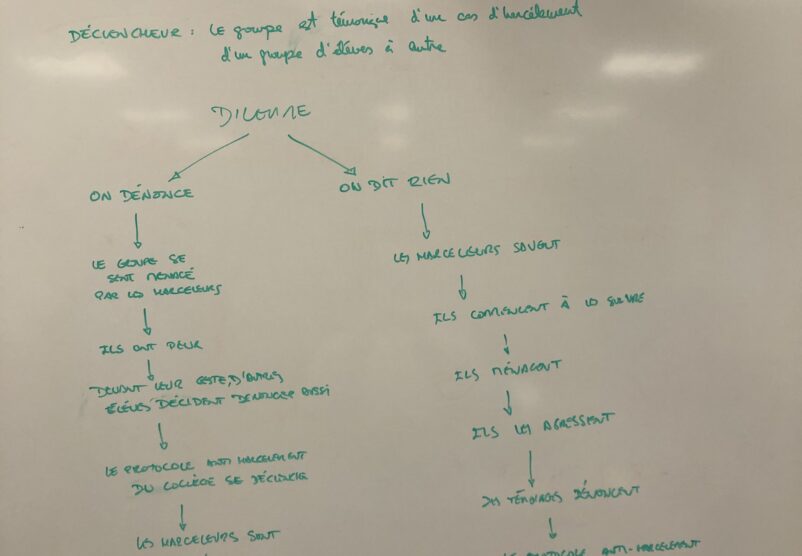 DÉCLENCHEUR : LE groupe est témonique d'un cas d'harcèlement
d'un groupe d'élèves à autre
DILEMME
ON DÉNONCE
LE GROUPE SE
SENT MENACÉ
PAR LES HARCELEURS
ILS ONT PEUR
DEVANT LEUR GESTE, D'AUTRES
ÉLÈVES DÉCIDENT DENONCER AUSSI
LE PROTOCOLE ANTI HARCELEMENT
DU COLLÈGE SE DÉCLENCHE
LES HARCELEURS SONT
ON DIT RIEN
LES HARCELEURS SAVENT
ILS COMMENCENT À LES SUIVRE
ILS MÉNACENT
ILS LES AGRESSENT
DES TÉMOINAGES DÉNONCENT
LE PROTOCOLE ANTI-HARCELEMENT